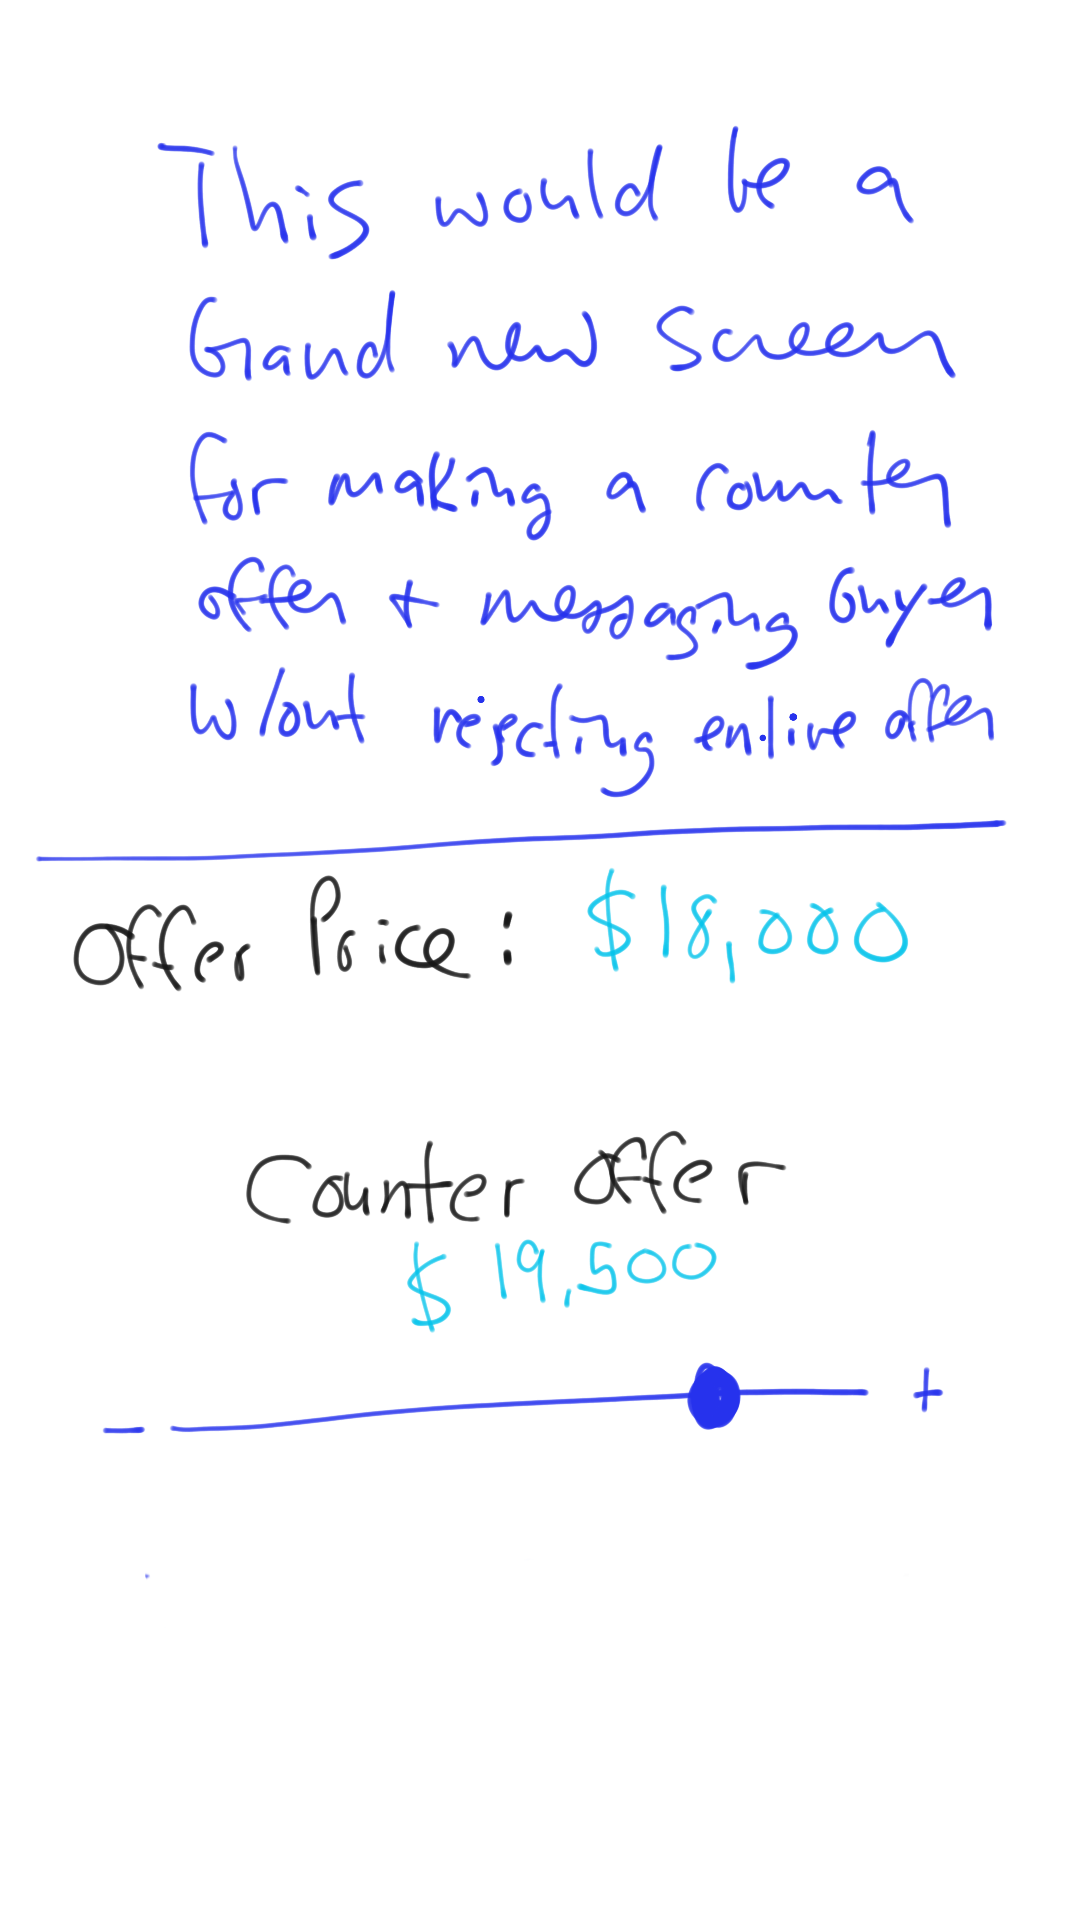 This would be a
brand new screen
for making a counter
offer + messaging buyer
w/out rejecting entire offer
Offer Price: $18,000
Counter Offer
$19,500
- +